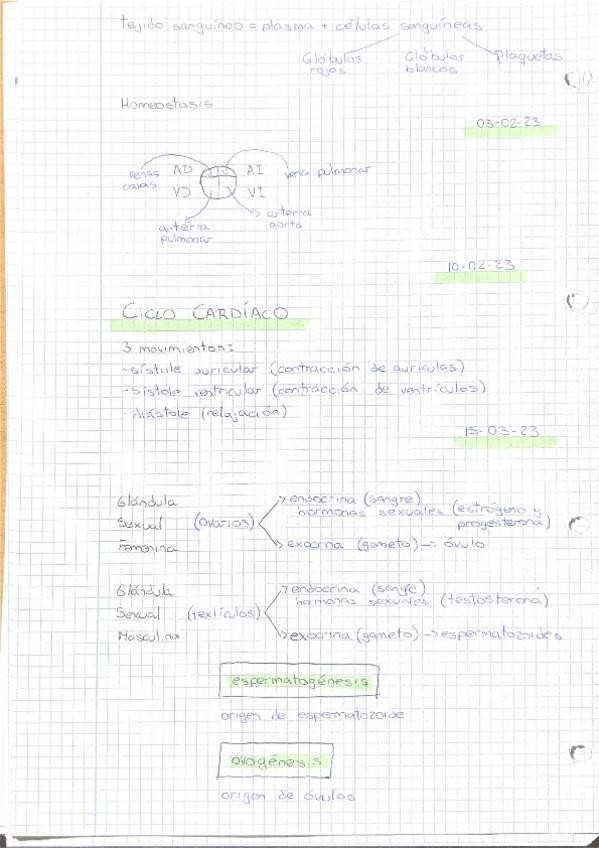 tejido sanguíneo = plasma + células sanguíneas
Glóbulos rojos
Glóbulos blancos
Plaquetas
Homeostasis
03-02-23
venas cavas
AD
AI
vena pulmonar
VD
VI
arteria pulmonar
arteria aorta
10-02-23
CICLO CARDÍACO
3 movimientos:
-sístole auricular (contracción de aurículas)
-sístole ventricular (contracción de ventrículos)
-diástole (relajación)
15-03-23
Glándula
Sexual (ovarios)
Femenina
endocrina (sangre)
hormonas sexuales (estrógeno y
progesterona)
exocrina (gameto) → óvulo
Glándula
Sexual (testículos)
Masculina
endocrina (sangre)
hormonas sexuales (testosterona)
exocrina (gameto) → espermatozoides
espermatogénesis
origen de espermatozoide
ovogénesis
origen de óvulos